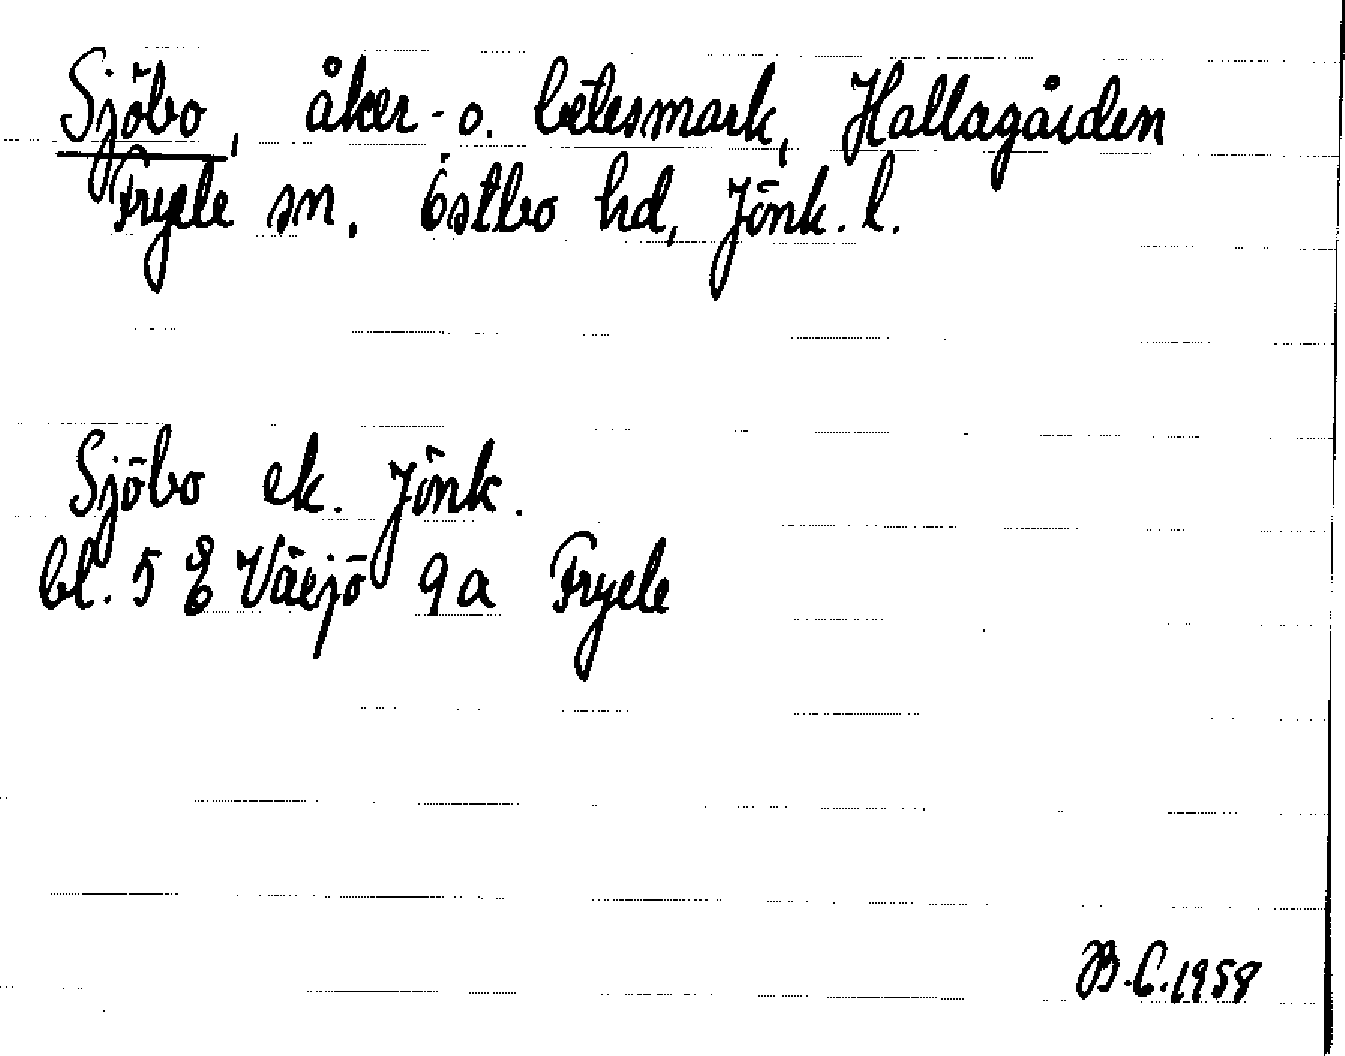 Sjöbo, åker- o. betesmark, Hallagården
Fryele sn. Östbo hd, Jönk. l.
Sjöbo ek. Jönk.
bl. 5 E Växjö 9a Fryele
B.C. 1958